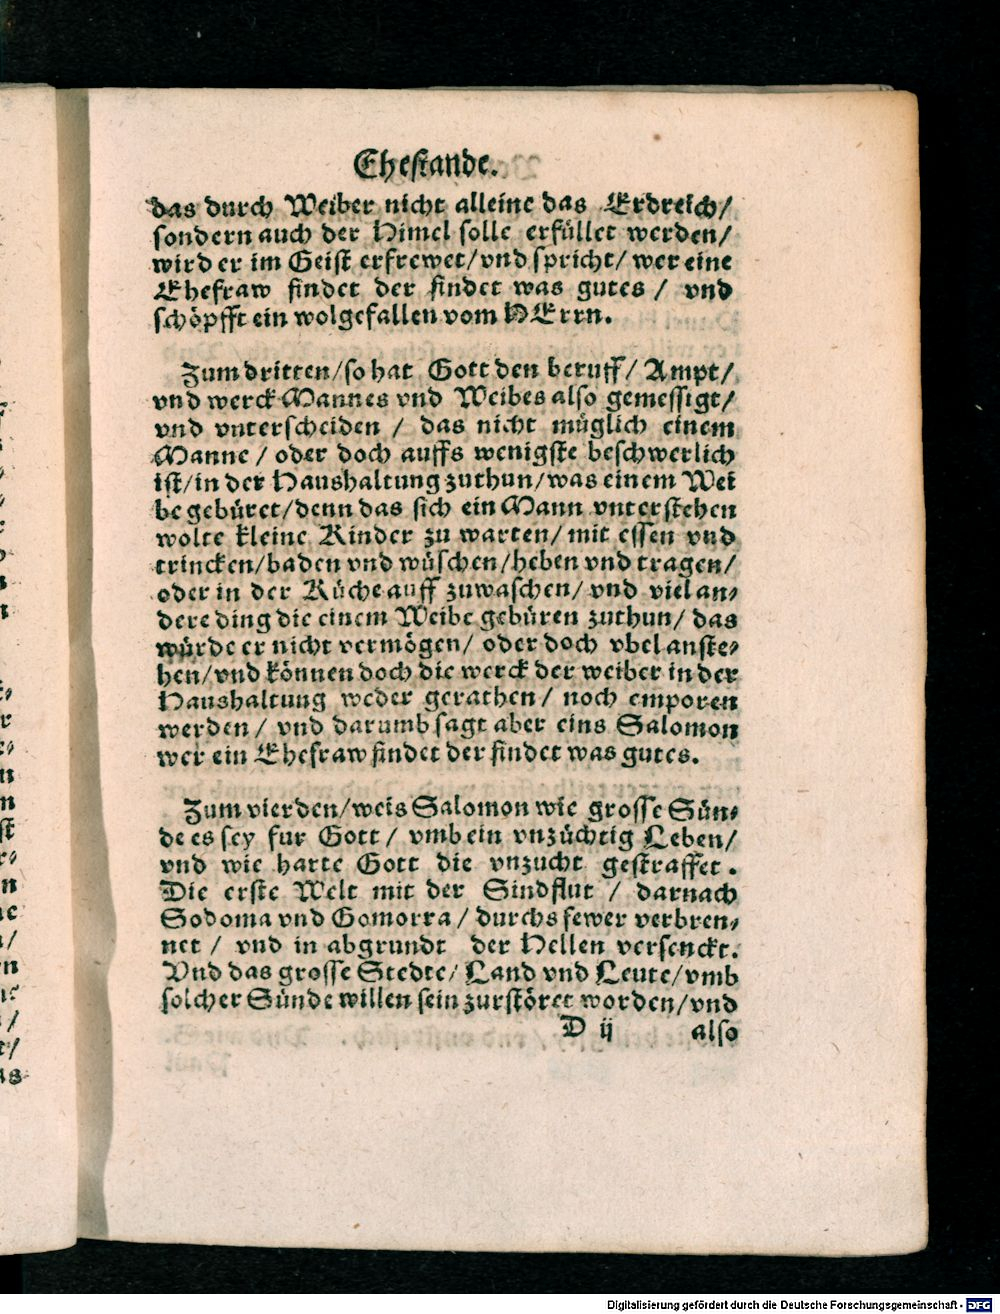 Ehestande.
das durch Weiber nicht alleine das Erdreich/
sondern auch der Himel solle erfüllet werden/
wird er im Geist erfrewet/vnd spricht/wer eine
Ehefraw findet der findet was gutes / vnd
schöpfft ein wolgefallen vom HErrn.
Zum dritten/so hat Gott den beruff/ Ampt/
vnd werck Mannes vnd Weibes also gemessigt/
vnd vnterscheiden / das nicht müglich einem
Manne / oder doch auffs wenigste beschwerlich
ist/in der Haushaltung zuthun/was einem Wei
be gebüret/denn das sich ein Mann vnterstehen
wolte kleine Kinder zu warten/mit essen vnd
trincken/baden vnd wüschen/heben vnd tragen/
oder in der Küche auff zuwaschen/vnd viel an-
dere ding die einem Weibe gebüren zuthun/ das
würde er nicht vermögen/ oder doch vbel anste-
hen/vnd können doch die werck der weiber in der
Haushaltung weder gerathen/ noch emporen
werden/ vnd darumb sagt aber eins Salomon
wer ein Ehefraw findet der findet was gutes.
Zum vierden/weis Salomon wie grosse Sün-
de es sey fur Gott/ vmb ein vnzüchtig Leben/
vnd wie harte Gott die vnzucht gestraffet.
Die erste Welt mit der Sindflut / darnach
Sodoma vnd Gomorra/durchs fewer verbren-
net / vnd in abgrundt der Hellen versenckt.
Vnd das grosse Stedte/Land vnd Leute/vmb
solcher Sünde willen sein zurstöret worden/vnd
D ij also
Digitalisierung gefördert durch die Deutsche Forschungsgemeinschaft - DFG